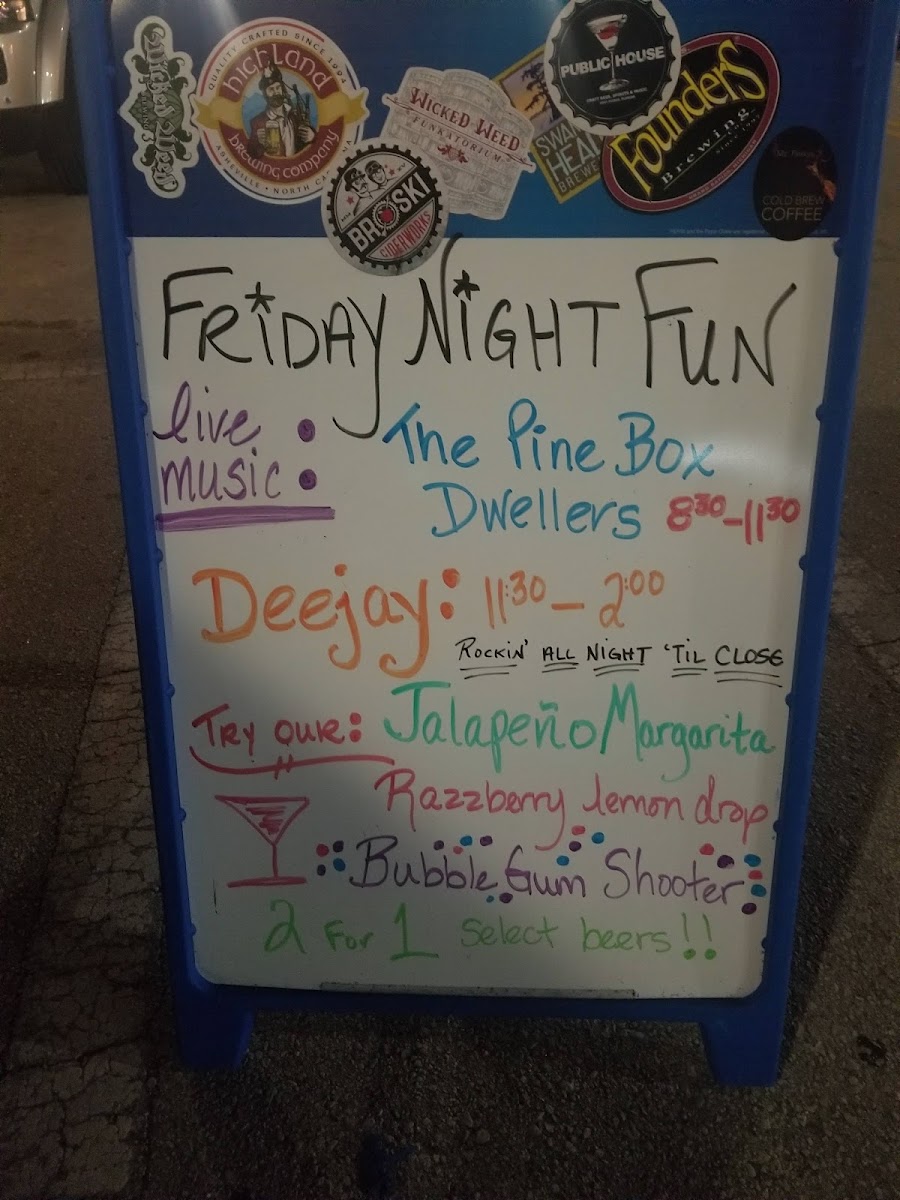 Wicked Weed
QUALITY CRAFTED SINCE 1994
highland
BREWING COMPANY
ASHEVILLE • NORTH CAROLINA
WICKED WEED
FUNKATORIUM
BROSKI
CIDERWORKS
PUBLIC HOUSE
FOUNDERS
Brewing
COLD BREW
COFFEE
FRiDAY NiGHT FUN
live music: The Pine Box
Dwellers 8³⁰-11³⁰
Deejay: 11:30 - 2:00
ROCKIN' ALL NIGHT 'TIL CLOSE
TRY OUR: Jalapeño Margarita
Razzberry lemon drop
Bubble Gum Shooter
2 FOR 1 Select beers!!